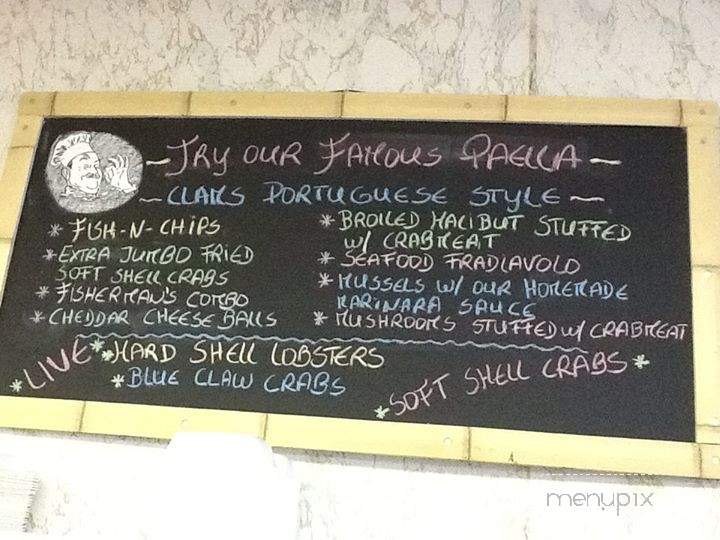 ~TRY OUR FAMOUS PAELLA~
~CLAMS PORTUGUESE STYLE~
* FISH-N-CHIPS
* EXTRA JUMBO FRIED
SOFT SHELL CRABS
* FISHERMAN'S COMBO
* CHEDDAR CHEESE BALLS
* BROILED HALIBUT STUFFED
W/ CRABMEAT
* SEAFOOD FRADIAVOLO
* MUSSELS W/ OUR HOMEMADE
MARINARA SAUCE
* MUSHROOMS STUFFED W/ CRABMEAT
*LIVE* *HARD SHELL LOBSTERS
*BLUE CLAW CRABS
*SOFT SHELL CRABS*
menupix